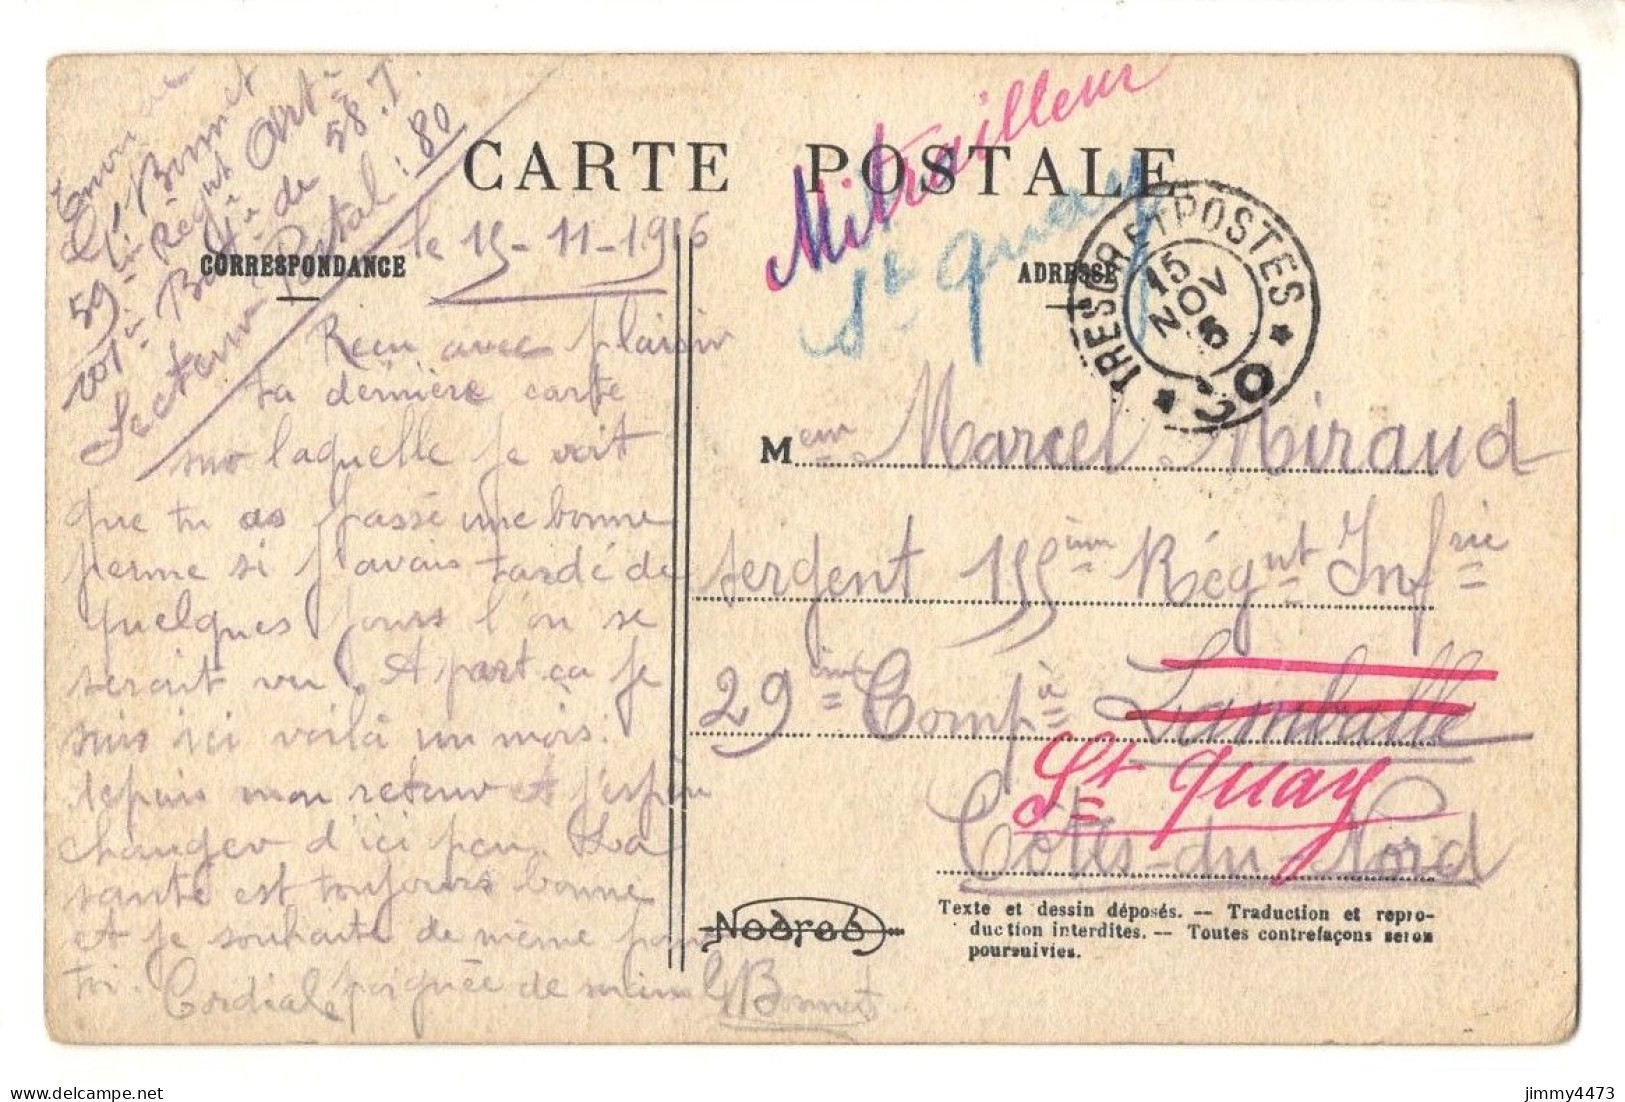 Envoi de
G. Bonnet
59ème Régnt Art-ie
101e Bie de 58.T.
Secteur Postal : 80
CARTE POSTALE
Mitrailleur
St Quay
CORRESPONDANCE
ADRESSE
TRESOR ET POSTES
15 NOV 6
* 30 *
le 15-11-1916
Reçu avec plaisir
ta dernière carte
sur laquelle je voit
que tu as passé une bonne
perme si j'avais tardé de
quelques jours l'on se
serait vu. A part ça je
suis ici voilà un mois.
depuis mon retour et j'espère
changer d'ici peu. La
santé est toujours bonne
et je souhaite de même pour
toi. Cordiale poignée de mains G Bonnet
Mem Marcel Miraud
sergent 155ème Régnt Infrie
29ème Compie à Lamballe
St Quay
Côtes-du-Nord
Nodreb
Texte et dessin déposés. — Traduction et repro-
duction interdites. — Toutes contrefaçons seron
poursuivies.
delcampe.net
jimmy4473